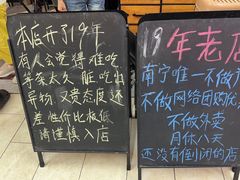 本店开了19年
有人会觉得难吃
等菜太久 脏 吃出
异物 又贵态度还
差 性价比极低
请谨慎入店
19年老店
南宁唯一不做
不做网络团购优
不做外卖
月休八天
还没有倒闭的店